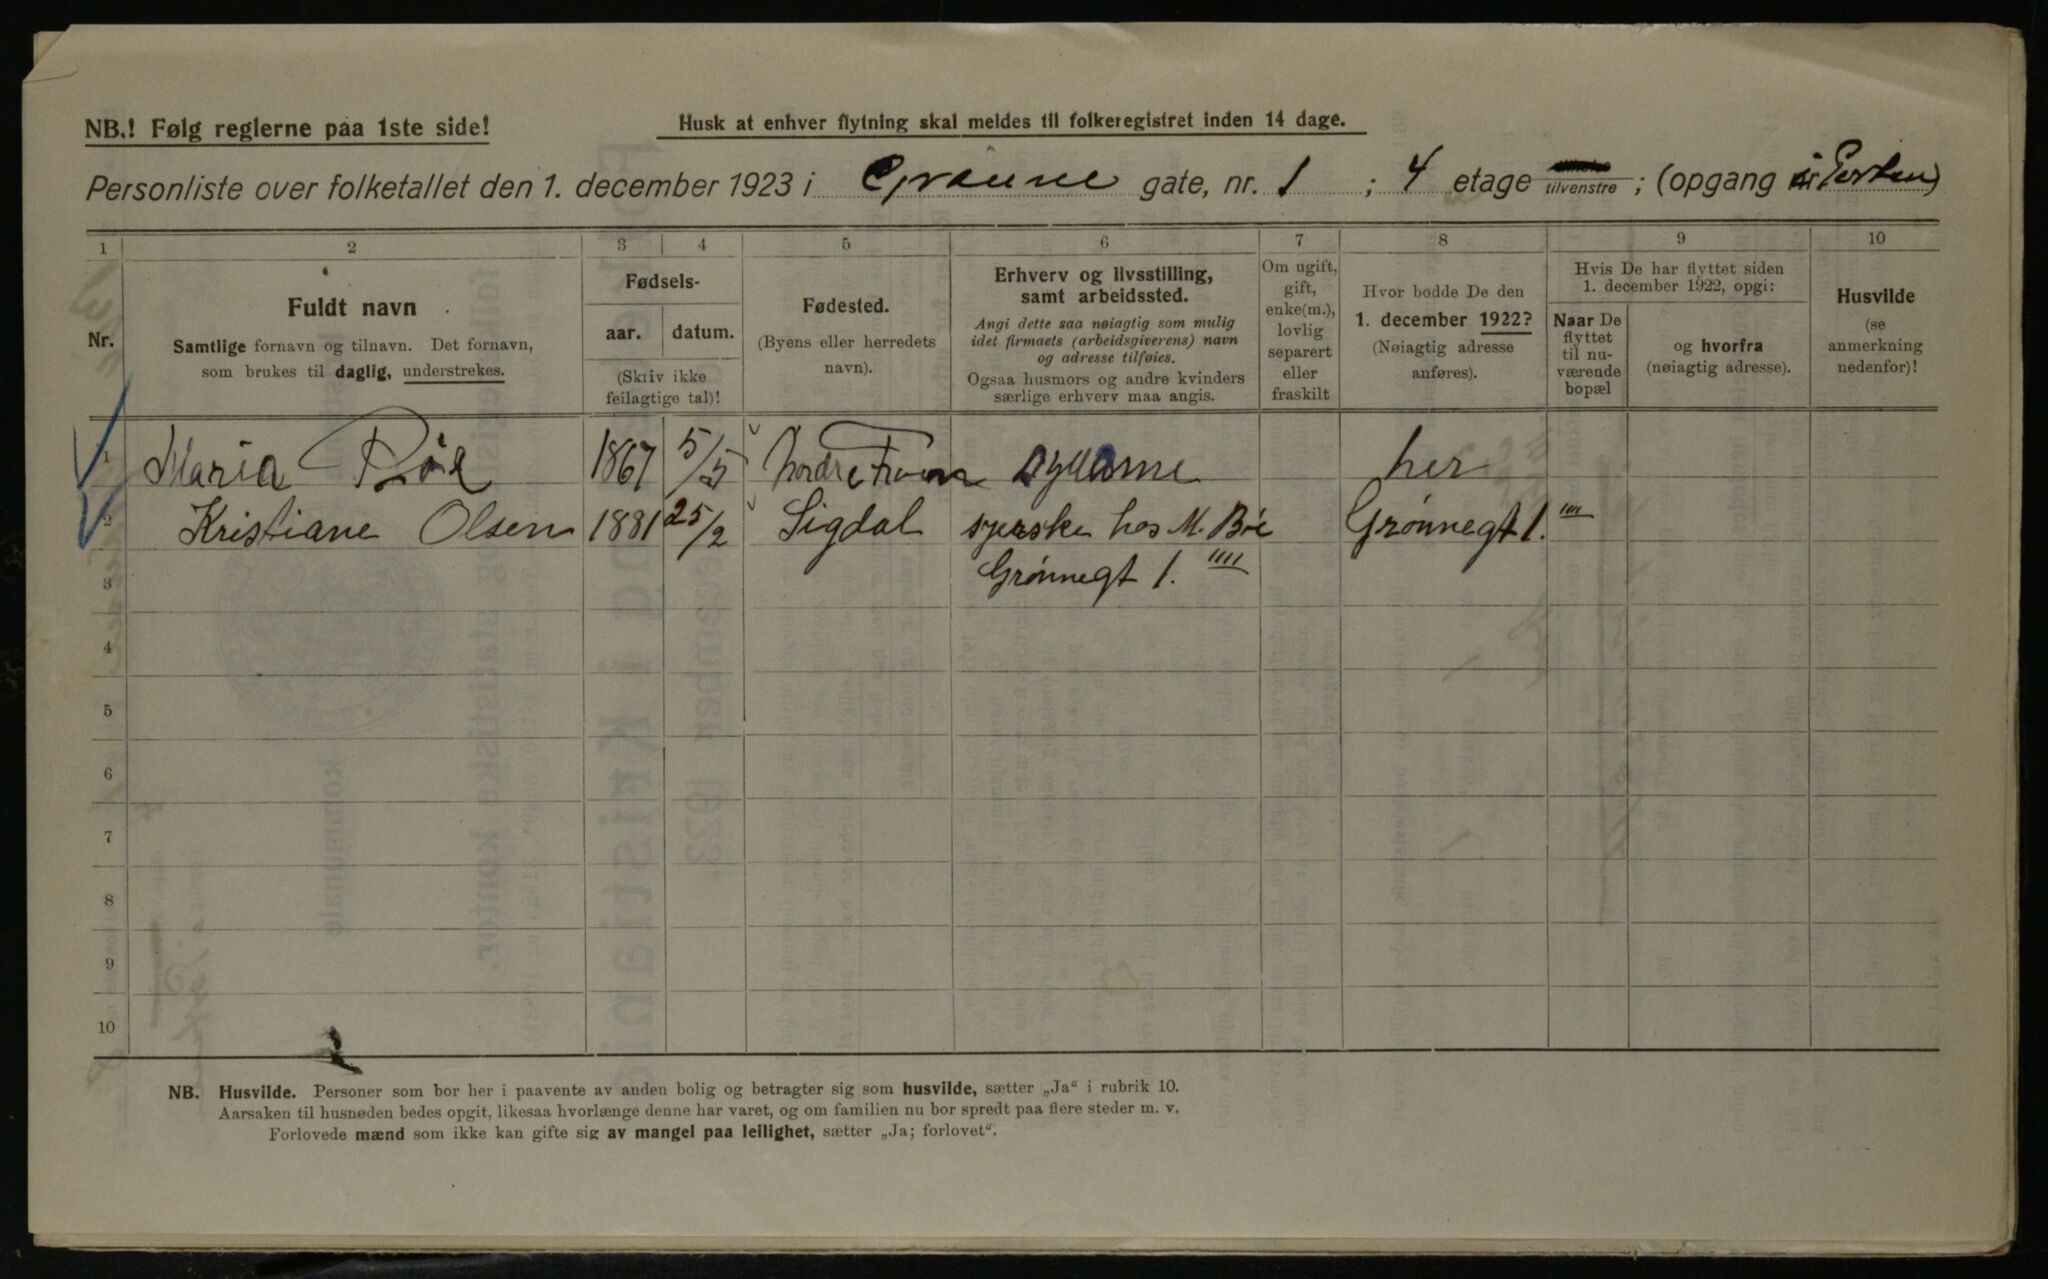 NB.! Følg reglerne paa 1ste side!
Husk at enhver flytning skal meldes til folkeregistret inden 14 dage.
Personliste over folketallet den 1. december 1923 i Grønne gate, nr. 1 ; 4 etage tilvenstre ; (opgang Porten)
1 2 3 4 5 6 7 8 9 10
Nr.
Fuldt navn
Samtlige fornavn og tilnavn. Det fornavn,
som brukes til daglig, understrekes.
Fødsels-
aar. datum.
(Skriv ikke
feilagtige tal)!
Fødested.
(Byens eller herredets
navn).
Erhverv og livsstilling,
samt arbeidssted.
Angi dette saa nøiagtig som mulig
idet firmaets (arbeidsgiverens) navn
og adresse tilføies.
Ogsaa husmors og andre kvinders
særlige erhverv maa angis.
Om ugift,
gift,
enke(m.),
lovlig
separert
eller
fraskilt
Hvor bodde De den
1. december 1922?
(Nøiagtig adresse
anføres).
Hvis De har flyttet siden
1. december 1922, opgi:
Naar De
flyttet
til nu-
værende
bopæl
og hvorfra
(nøiagtig adresse).
Husvilde
(se
anmerkning
nedenfor)!
1 Maria Bøe 1867 5/5 Nordre Fron her
2 Kristiane Olsen 1881 25/2 Sigdal syerske hos M. Bøe Grønnegt 1. ''''
3 Grønnegt 1. ''''
4
5
6
7
8
9
10
NB. Husvilde. Personer som bor her i paavente av anden bolig og betragter sig som husvilde, sætter „Ja“ i rubrik 10.
Aarsaken til husnøden bedes opgit, likesaa hvorlænge denne har varet, og om familien nu bor spredt paa flere steder m. v.
Forlovede mænd som ikke kan gifte sig av mangel paa leilighet, sætter „Ja; forlovet“.